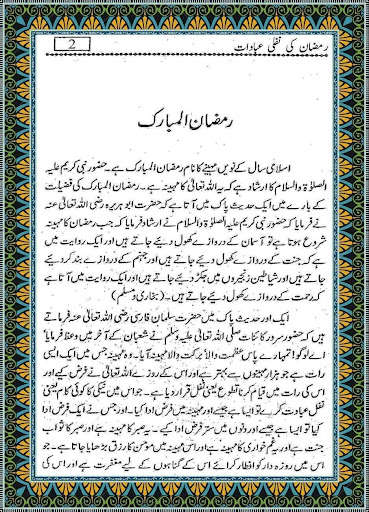 رمضان کی نفلی عبادات
2
رمضان المبارک
اسلامی سال کے نویں مہینے کا نام رمضان المبارک ہے۔ حضور نبی کریم علیہ
الصلوٰۃ والسلام کا ارشاد ہے کہ یہ اللہ تعالیٰ کا مہینہ ہے۔ رمضان المبارک کی فضیلت
کے بارے میں ایک حدیث پاک میں آتا ہے کہ حضرت ابو ہریرہ رضی اللہ تعالیٰ عنہ
نے فرمایا کہ حضور نبی کریم علیہ الصلوٰۃ والسلام نے ارشاد فرمایا کہ جب رمضان کا مہینہ
شروع ہوتا ہے تو آسمان کے دروازے کھول دیئے جاتے ہیں اور ایک روایت میں
ہے کہ جنت کے دروازے کھول دیئے جاتے ہیں اور جہنم کے دروازے بند کر دیئے
جاتے ہیں اور شیاطین زنجیروں میں جکڑ دیئے جاتے ہیں اور ایک روایت میں آتا ہے
کہ رحمت کے دروازے کھول دیئے جاتے ہیں۔ (بخاری و مسلم)
ایک اور حدیث پاک میں حضرت سلمان فارسی رضی اللہ تعالیٰ عنہ فرماتے
ہیں کہ حضور سرور کائنات صلی اللہ تعالیٰ علیہ وسلم نے شعبان کے آخر میں وعظ فرمایا'
اے لوگو! تمہارے پاس عظمت والا' برکت والا مہینہ آیا۔ وہ مہینہ جس میں ایک ایسی
رات ہے جو ہزار مہینوں سے بہتر ہے اور اس کے روزے اللہ تعالیٰ نے فرض کیے اور
اس کی رات میں قیام کرنا تطوع یعنی نفل قرار دیا ہے۔ جو اس میں نیکی کا کوئی کام یعنی
نفل عبادت کرے تو ایسا ہے جیسے اور مہینہ میں فرض ادا کیا۔ اور جس نے ایک فرض ادا
کیا تو ایسا ہے جیسے اور دنوں میں ستر فرض ادا کیے۔ یہ صبر کا مہینہ ہے اور صبر کا ثواب
جنت ہے اور یہ غم خواری کا مہینہ ہے اور اس مہینہ میں مومن کا رزق بڑھایا جاتا ہے۔ جو
اس میں روزہ دار کو افطار کرائے اس کے گناہوں کے لیے مغفرت ہے اور اس کی